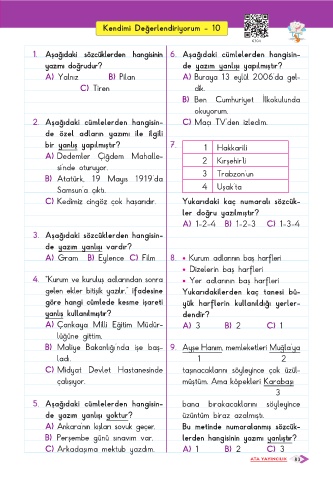 Kendimi Değerlendiriyorum - 10
1. Aşağıdaki sözcüklerden hangisinin
yazımı doğrudur?
A) Yalnız B) Pilan
C) Tiren
2. Aşağıdaki cümlelerden hangisin-
de özel adların yazımı ile ilgili
bir yanlış yapılmıştır?
A) Dedemler Çiğdem Mahalle-
sinde oturuyor.
B) Atatürk, 19 Mayıs 1919'da
Samsun'a çıktı.
C) Kedimiz cingöz çok haşarıdır.
3. Aşağıdaki sözcüklerden hangisin-
de yazım yanlışı vardır?
A) Gram B) Eylence C) Film
4. "Kurum ve kuruluş adlarından sonra
gelen ekler bitişik yazılır." ifadesine
göre hangi cümlede kesme işareti
yanlış kullanılmıştır?
A) Çankaya Milli Eğitim Müdür-
lüğüne gittim.
B) Maliye Bakanlığı'nda işe baş-
ladı.
C) Midyat Devlet Hastanesinde
çalışıyor.
5. Aşağıdaki cümlelerden hangisin-
de yazım yanlışı yoktur?
A) Ankara'nın kışları savuk geçer.
B) Perşembe günü sınavım var.
C) Arkadaşıma mektub yazdım.
6. Aşağıdaki cümlelerden hangisin-
de yazım yanlışı yapılmıştır?
A) Buraya 13 eylül 2006'da gel-
dik.
B) Ben Cumhuriyet İlkokulunda
okuyorum.
C) Maçı TV'den izledim.
7.
1 Hakkari'li
2 Kırşehir'li
3 Trabzon'un
4 Uşak'ta
Yukarıdaki kaç numaralı sözcük-
ler doğru yazılmıştır?
A) 1-2-4 B) 1-2-3 C) 1-3-4
8. • Kurum adlarının baş harfleri
• Dizelerin baş harfleri
• Yer adlarının baş harfleri
Yukarıdakilerden kaç tanesi bü-
yük harflerin kullanıldığı yerler-
dendir?
A) 3 B) 2 C) 1
9. Ayşe Hanım, memleketleri Muğla'ya
1 2
taşınacaklarını söyleyince çok üzül-
müştüm. Ama köpekleri Karabaşı
3
bana bırakacaklarını söyleyince
üzüntüm biraz azalmıştı.
Bu metinde numaralanmış sözcük-
lerden hangisinin yazımı yanlıştır?
A) 1 B) 2 C) 3
ATA YAYINCILIK 83